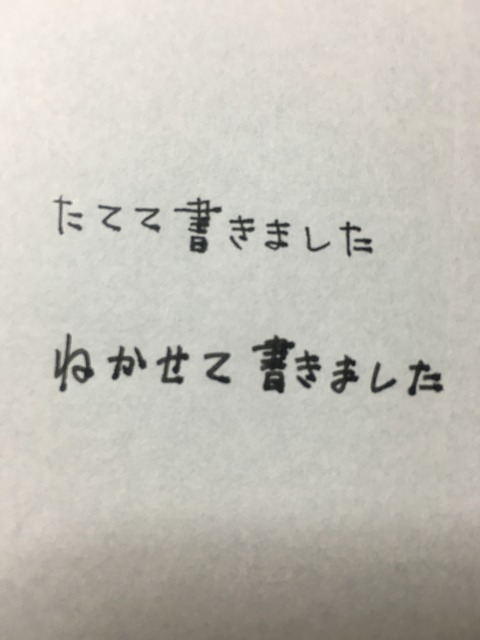 たてて書きました
ねかせて書きました